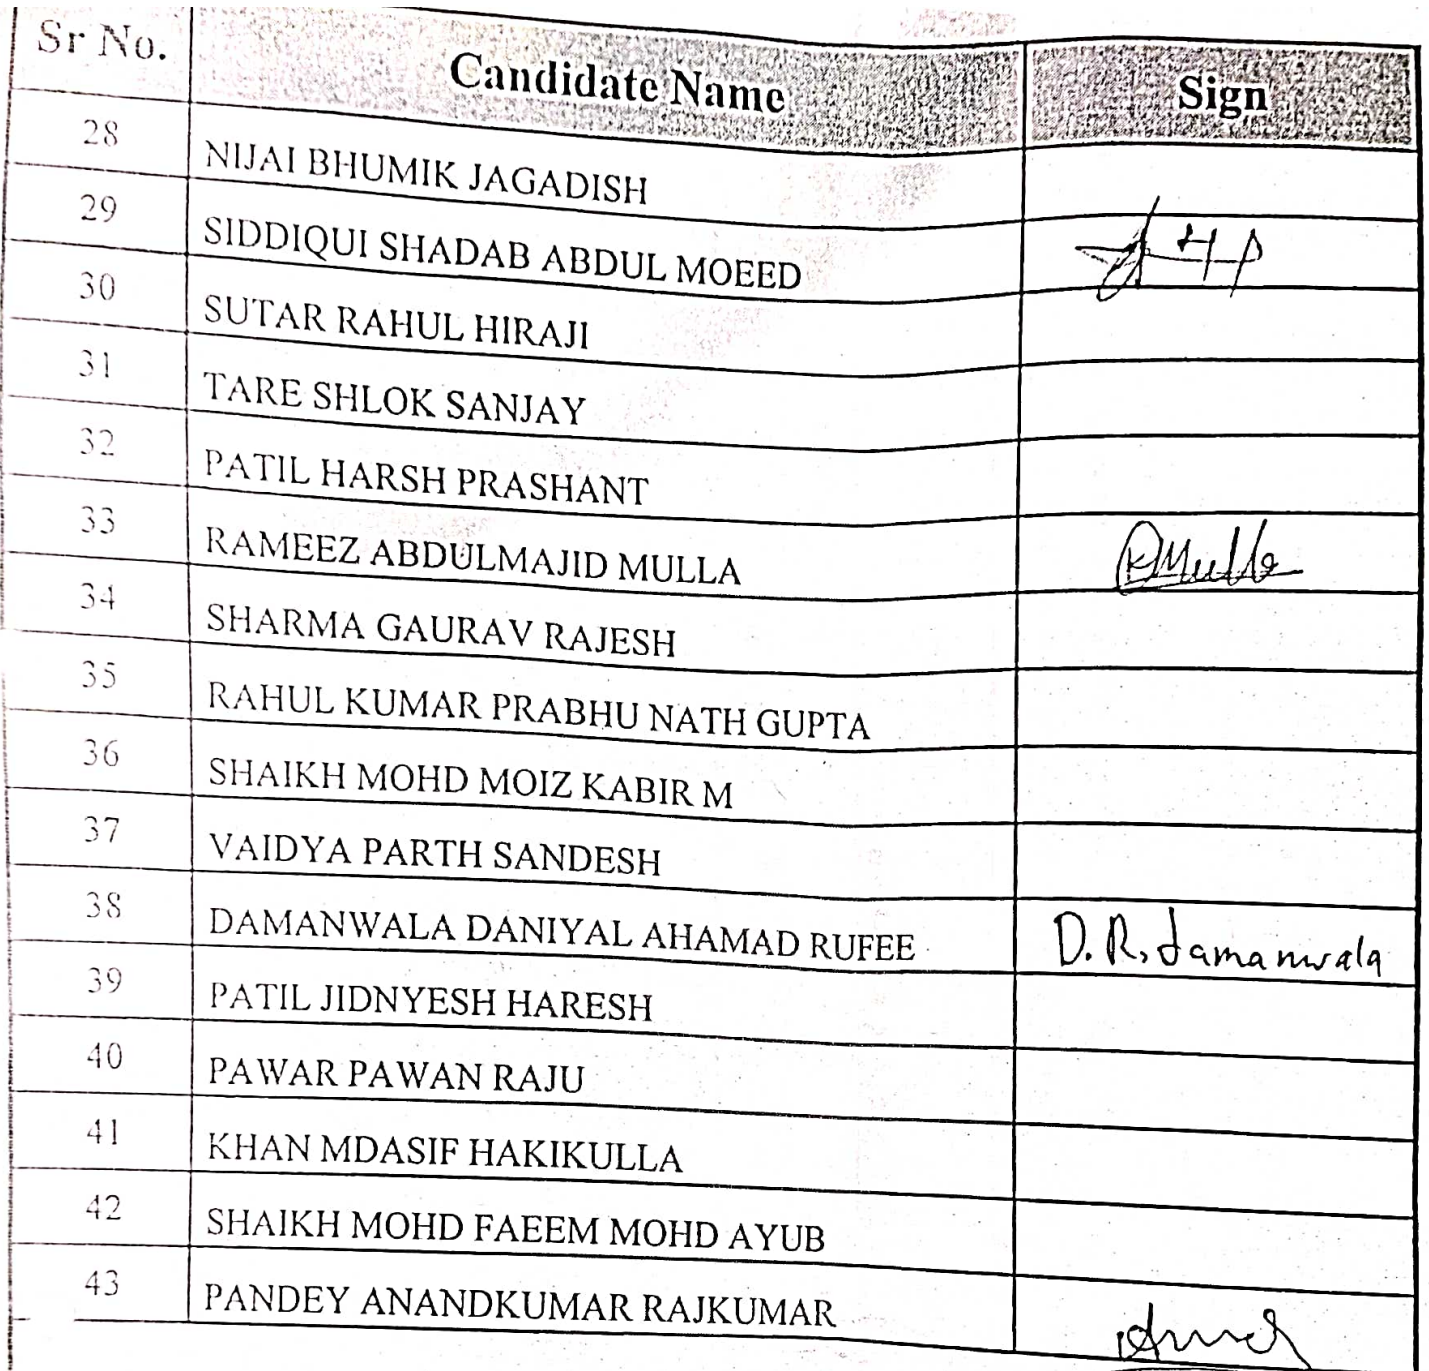 Sr No. Candidate Name Sign
28 NIJAI BHUMIK JAGADISH
29 SIDDIQUI SHADAB ABDUL MOEED
30 SUTAR RAHUL HIRAJI
31 TARE SHLOK SANJAY
32 PATIL HARSH PRASHANT
33 RAMEEZ ABDULMAJID MULLA RMulla
34 SHARMA GAURAV RAJESH
35 RAHUL KUMAR PRABHU NATH GUPTA
36 SHAIKH MOHD MOIZ KABIR M
37 VAIDYA PARTH SANDESH
38 DAMANWALA DANIYAL AHAMAD RUFEE D.R.damanwala
39 PATIL JIDNYESH HARESH
40 PAWAR PAWAN RAJU
41 KHAN MDASIF HAKIKULLA
42 SHAIKH MOHD FAEEM MOHD AYUB
43 PANDEY ANANDKUMAR RAJKUMAR